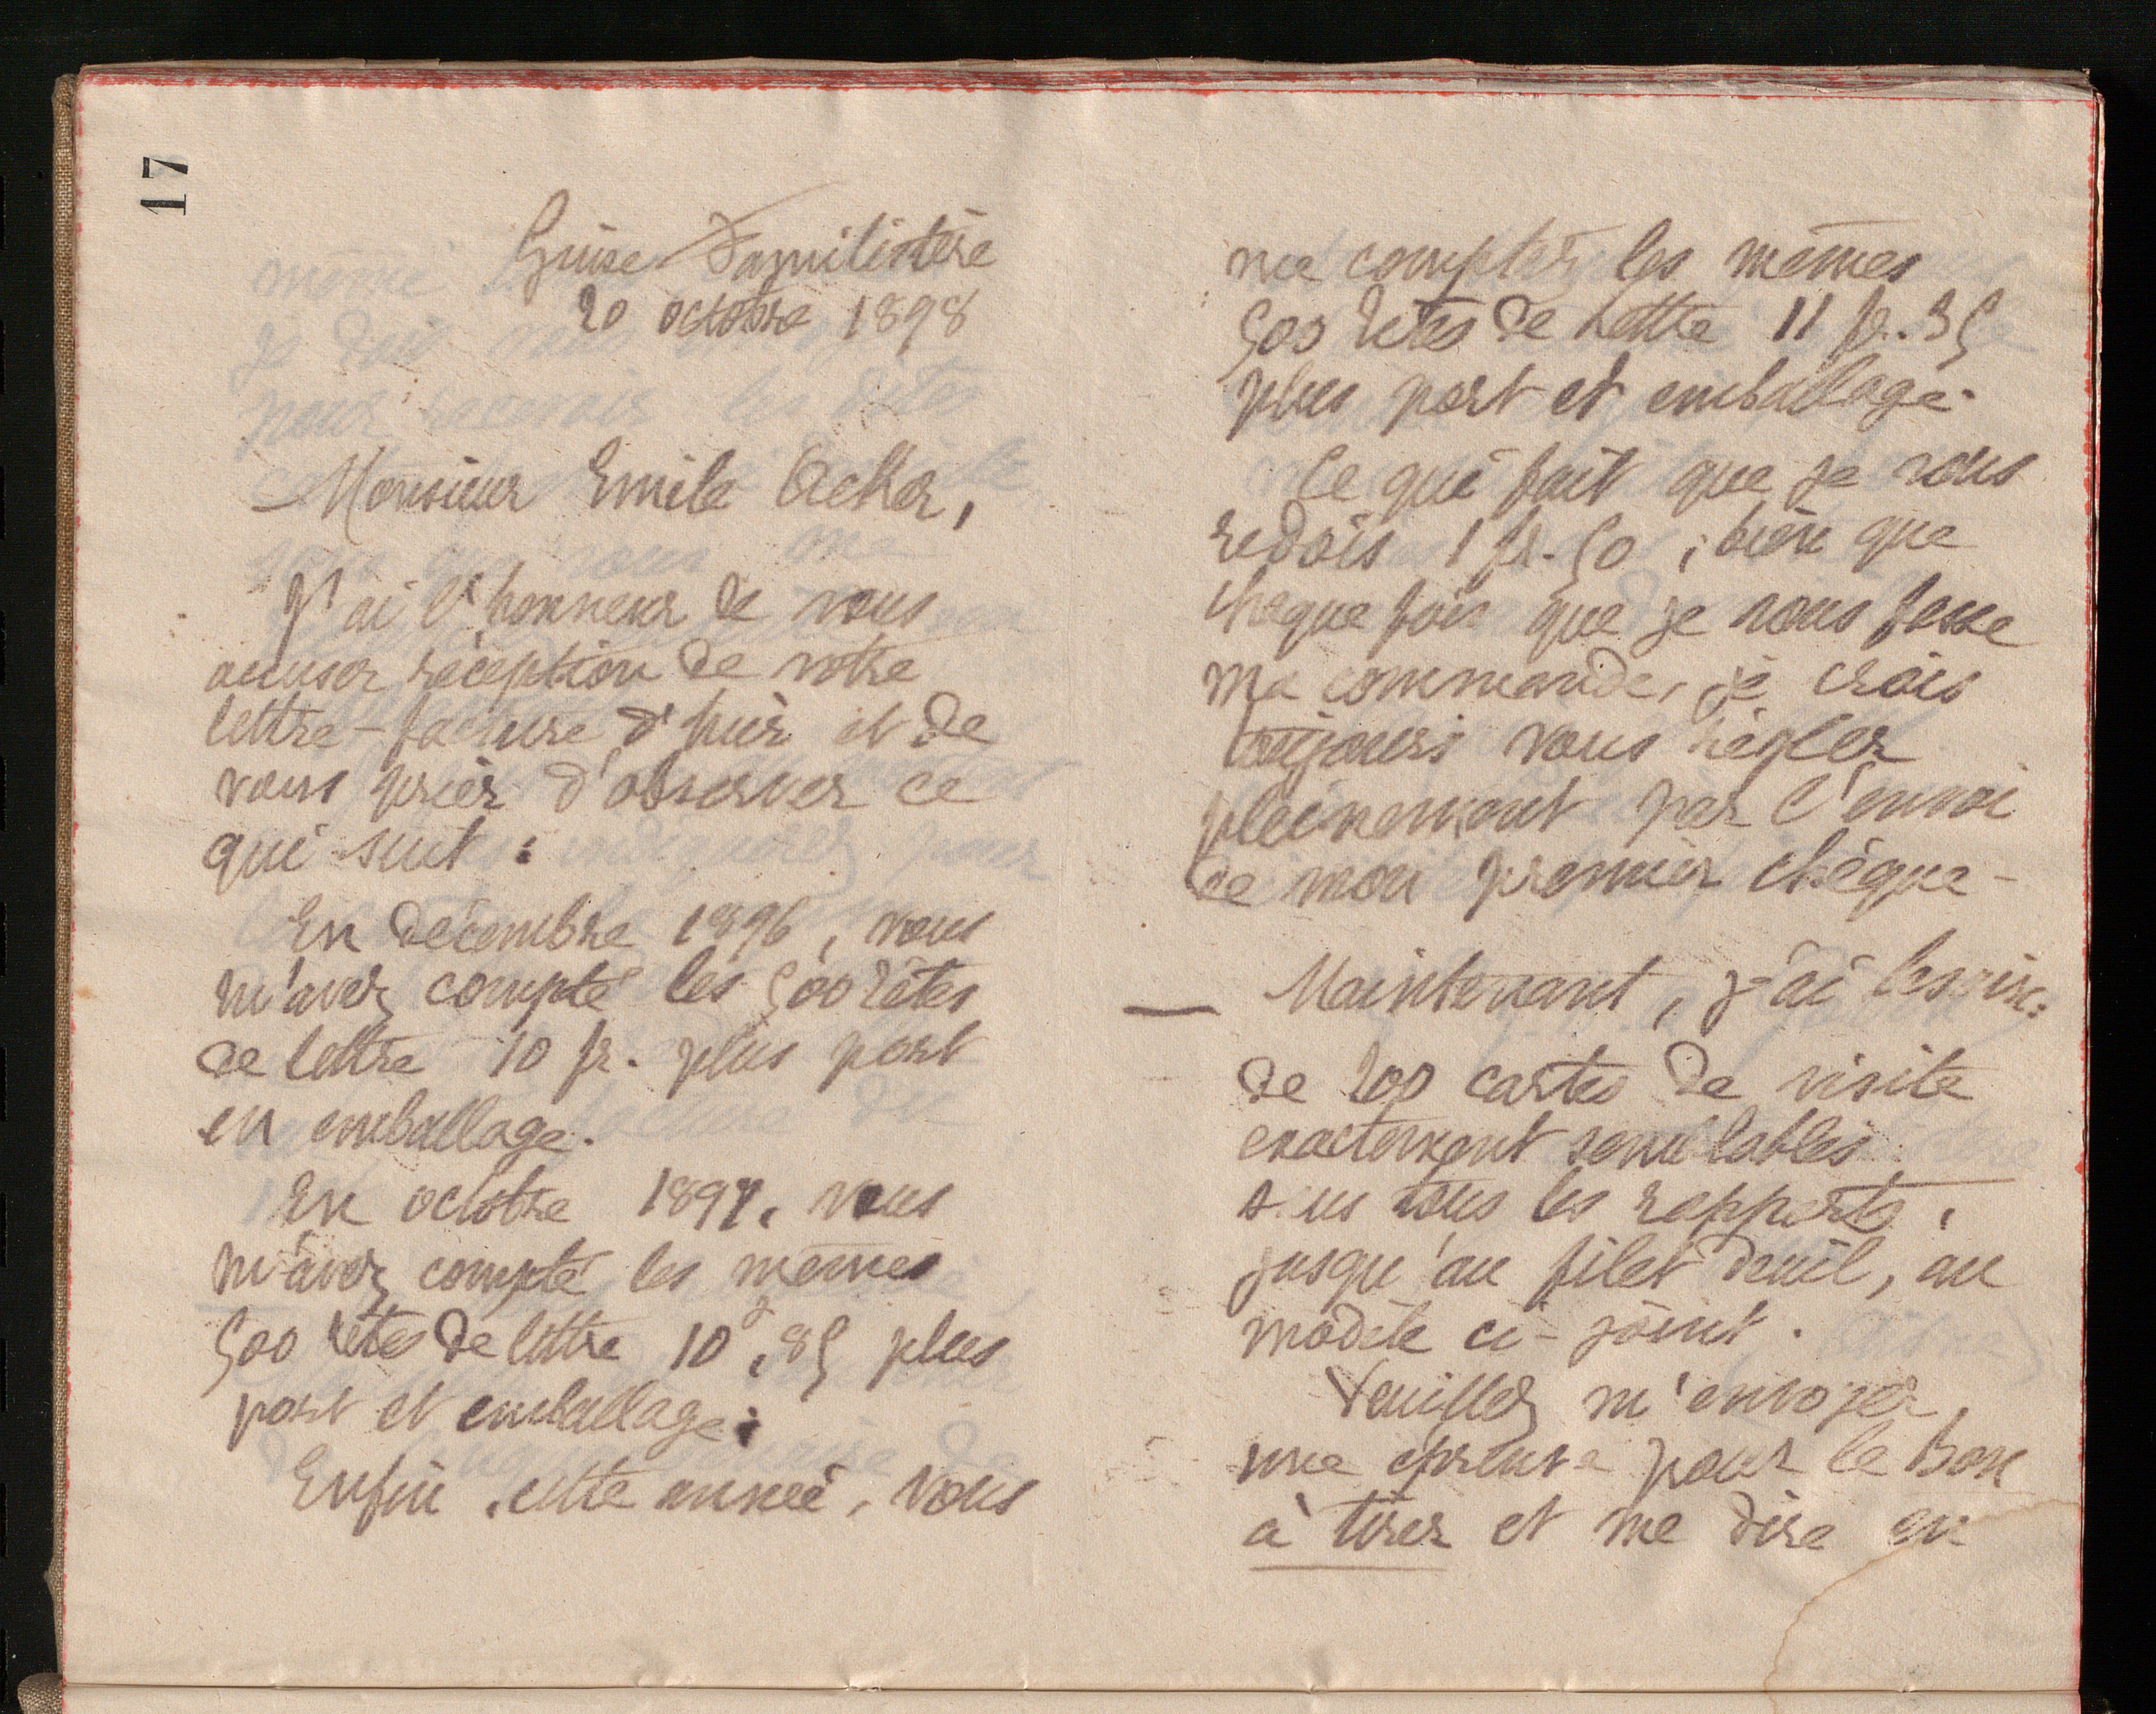 17
Guise Familistère
20 octobre 1898
Monsieur Emile Acker,
J'ai l'honneur de vous
accuser réception de votre
lettre-facture d'hier et de
vous prier d'observer ce
qui suit :
En décembre 1896, vous
m'avez compté les 500 têtes
de lettre 10 fr. plus port
en emballage.
En octobre 1897, vous
m'avez compté les mêmes
500 têtes de lettre 10f,85 plus
port et emballage.
Enfin, cette année, vous
me comptez les mêmes
500 têtes de lettre 11 fr. 35
plus port et emballage.
Ce qui fait que je vous
redois 1 fr. 50, bien que
chaque fois que je vous fasse
ma commande, je crois
toujours vous régler
pleinement par l'envoi
de mon premier chèque-
— Maintenant, j'ai besoin
de 200 cartes de visite
exactement semblables
sous tous les rapports,
jusqu'au filet deuil, au
modèle ci-joint.
Veuillez m'envoyer
une épreuve pour le Bon
à tirer et me dire en